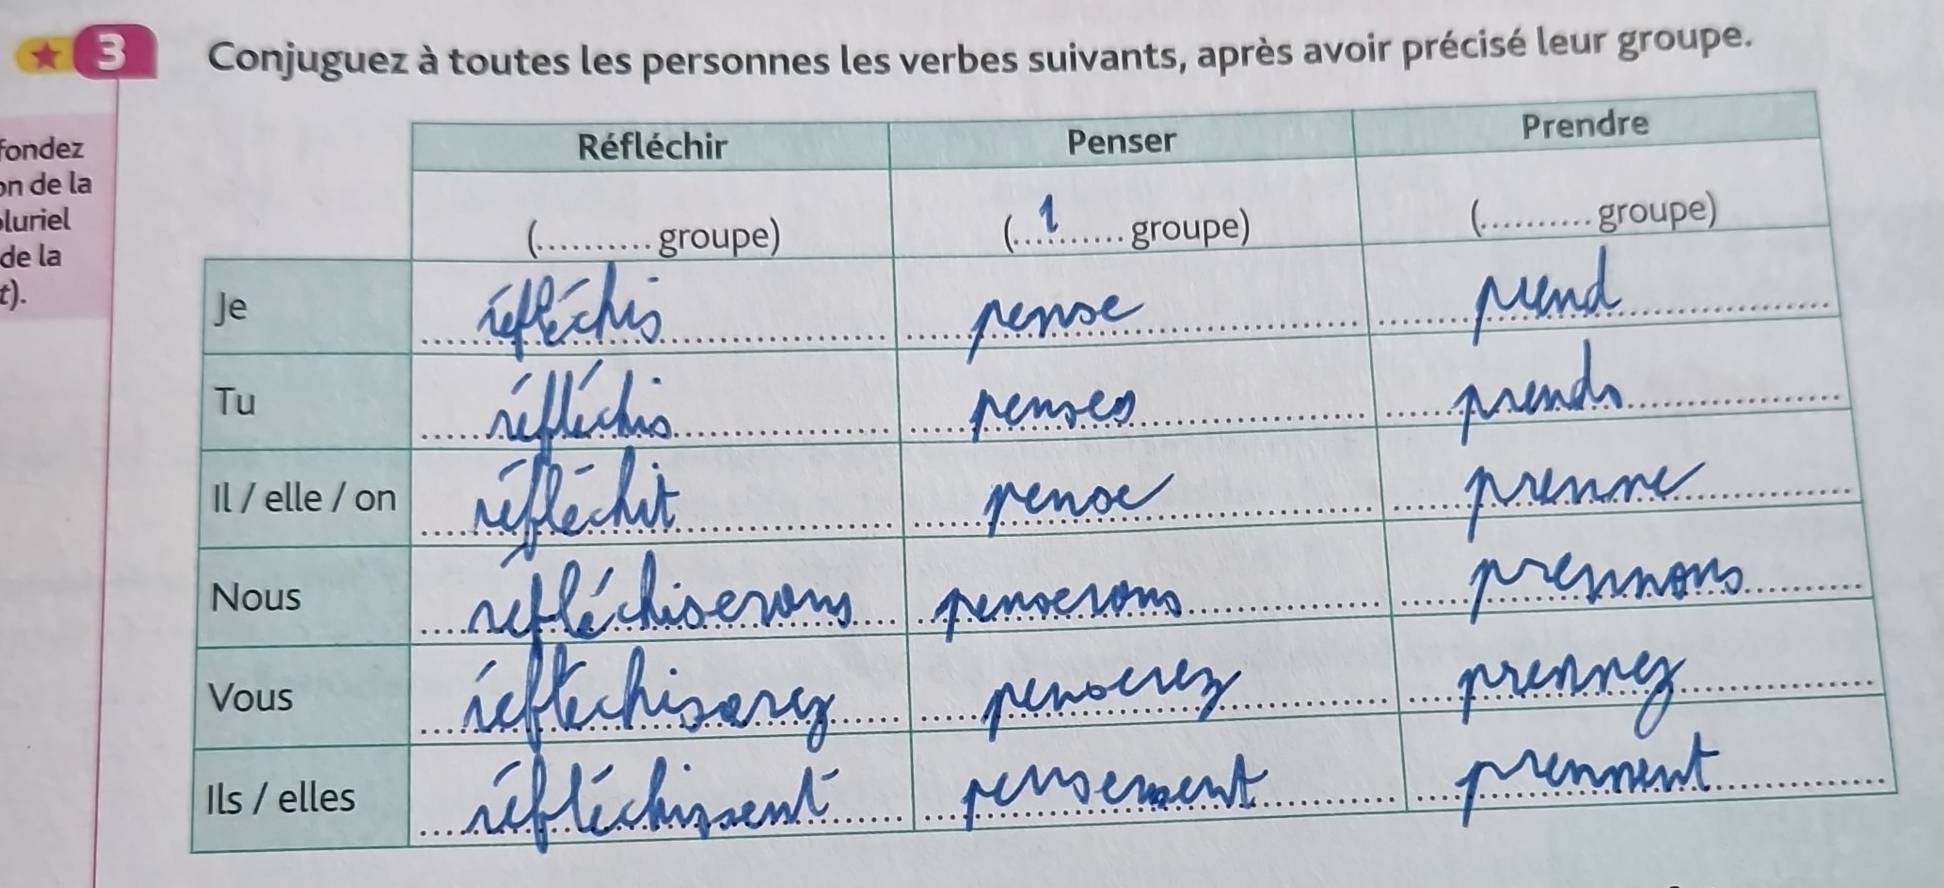 3 Conjuguez à toutes les personnes les verbes suivants, après avoir précisé leur groupe.
fondez
on de la
pluriel
de la
t).
Réfléchir Penser Prendre
(.......... groupe) (...1....... groupe) (.......... groupe)
Je réfléchis pense prend
Tu réfléchis penses prends
Il / elle / on réfléchit pense prenne
Nous refléchiserons penserons prennons
Vous penserez prennez
Ils / elles réfléchissent pensement prennent